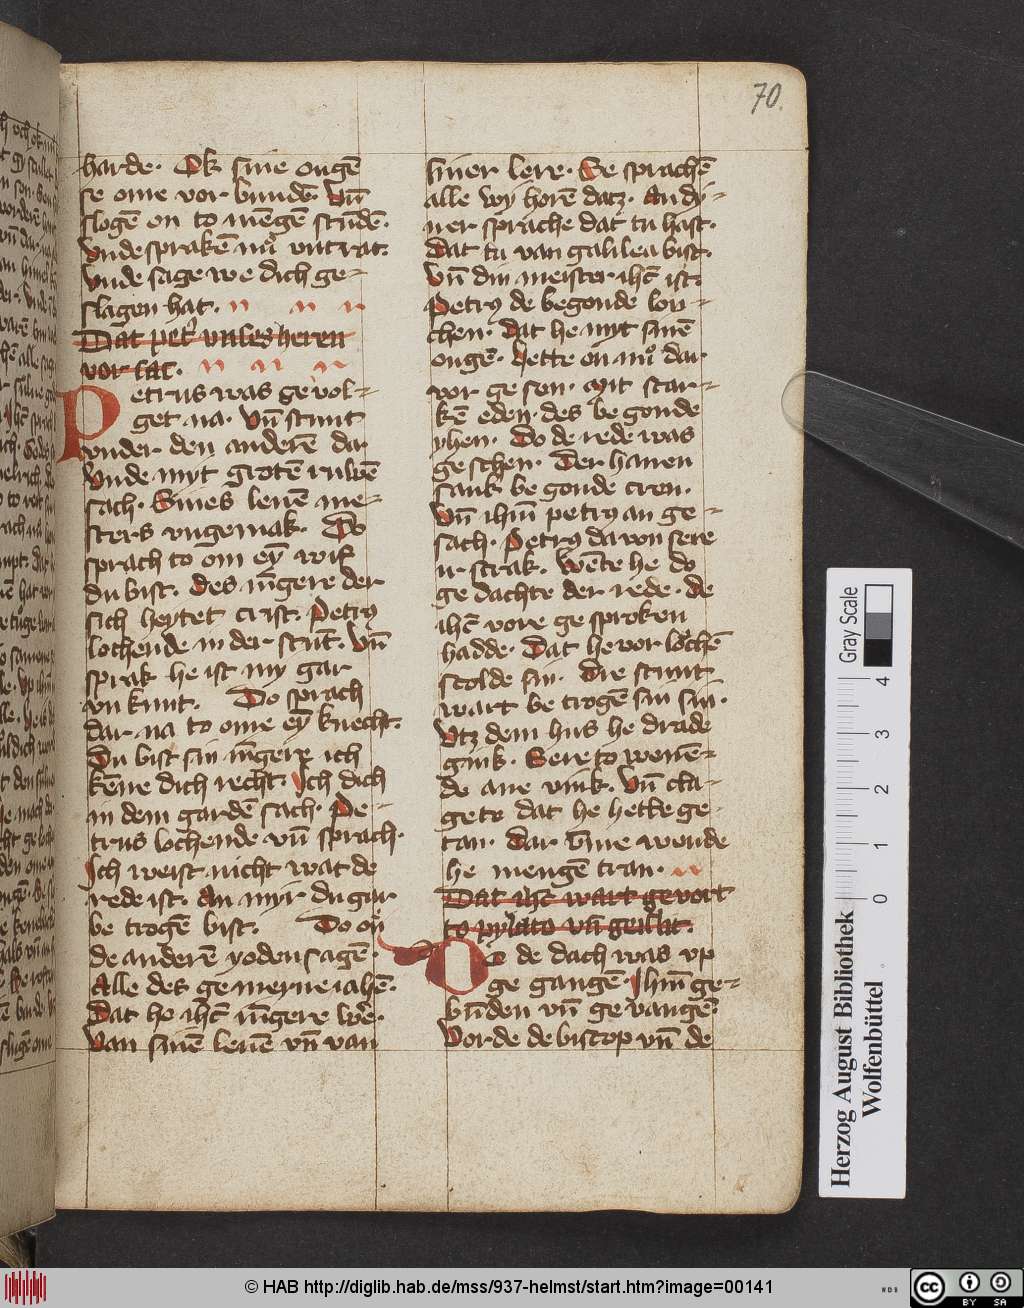 70.
harde. Ok sine ougē
se ome vor bundē. Vn̄
slogē en to mēgē stūdē.
Vnde sprakē nu̇ vntrat.
Vnde sage we dich ge-
slagen hat.
Dat pet᷒ vnses heren
vor lac.
Petrus was ge vol-
get na. Vn̄ stunt
vnder den anderē dar
Vnde myt grotē ruwē
sach. Sines leuē me-
sters vngemak. Do
sprach to om eȳ wif
du bist. Des iūgere der
sich heytet crist. Petrꝰ
lochende in der stūt. Vn̄
sprak he ist my gar
vn kunt. Do sprach
dar na to ome eȳ knecht.
Du bist sin iūger ich
kēne dich recht. Ich dich
in dem gardē sach. Pe-
trus lochende vn̄ sprach.
Ich weist nicht wat de
rede ist. An myr du gar
be trogē bist. Do
de anderē yoden sagē.
Alle des ge meyne iahē.
Dat he ihc̄ iūgere wēe.
Van sinē leuē vn̄ van
siner lere. Se sprachē
alle wy horē datz. An dy-
ner sprache dat tu hast.
Dat tu van galilea bist.
Vn̄ din meister ihc̄ ist.
Petrꝰ de begonde lou-
chen. Dat he myt sinē
ougē. Hette on nu̇ dar
vor ge sen. Mit star-
kē eden. des be gonde
yhen. Do de rede was
ge schen. Der hanen
sank be gonde cren.
Vn̄ ihm̄ petrꝰ an ge-
sach. Petrꝰ da von sere
ir strak. Wēte he do
ge dachte der rede. de
ihc̄ vore ge sproken
hadde. Dat he vor lochē
scolde sin. Die stunt
wart be trogē sin sin.
Vtz dem hus he drade
gink. Sere to wenē-
de ane vink. Vn̄ cla-
gete dat he hette ge-
tan. Dar v̄me wende
he mengē tran.
Dat ihc̄ wart gevort
to pylato vn̄ geilht.
Do de dach was vp
ge gangē. Ihm̄ ge-
būden vn̄ ge vangē.
Vorde de biscop vn̄ de
Gray Scale
0 1 2 3 4
Herzog August Bibliothek
Wolfenbüttel
© HAB http://diglib.hab.de/mss/937-helmst/start.htm?image=00141
WDB
cc BY SA